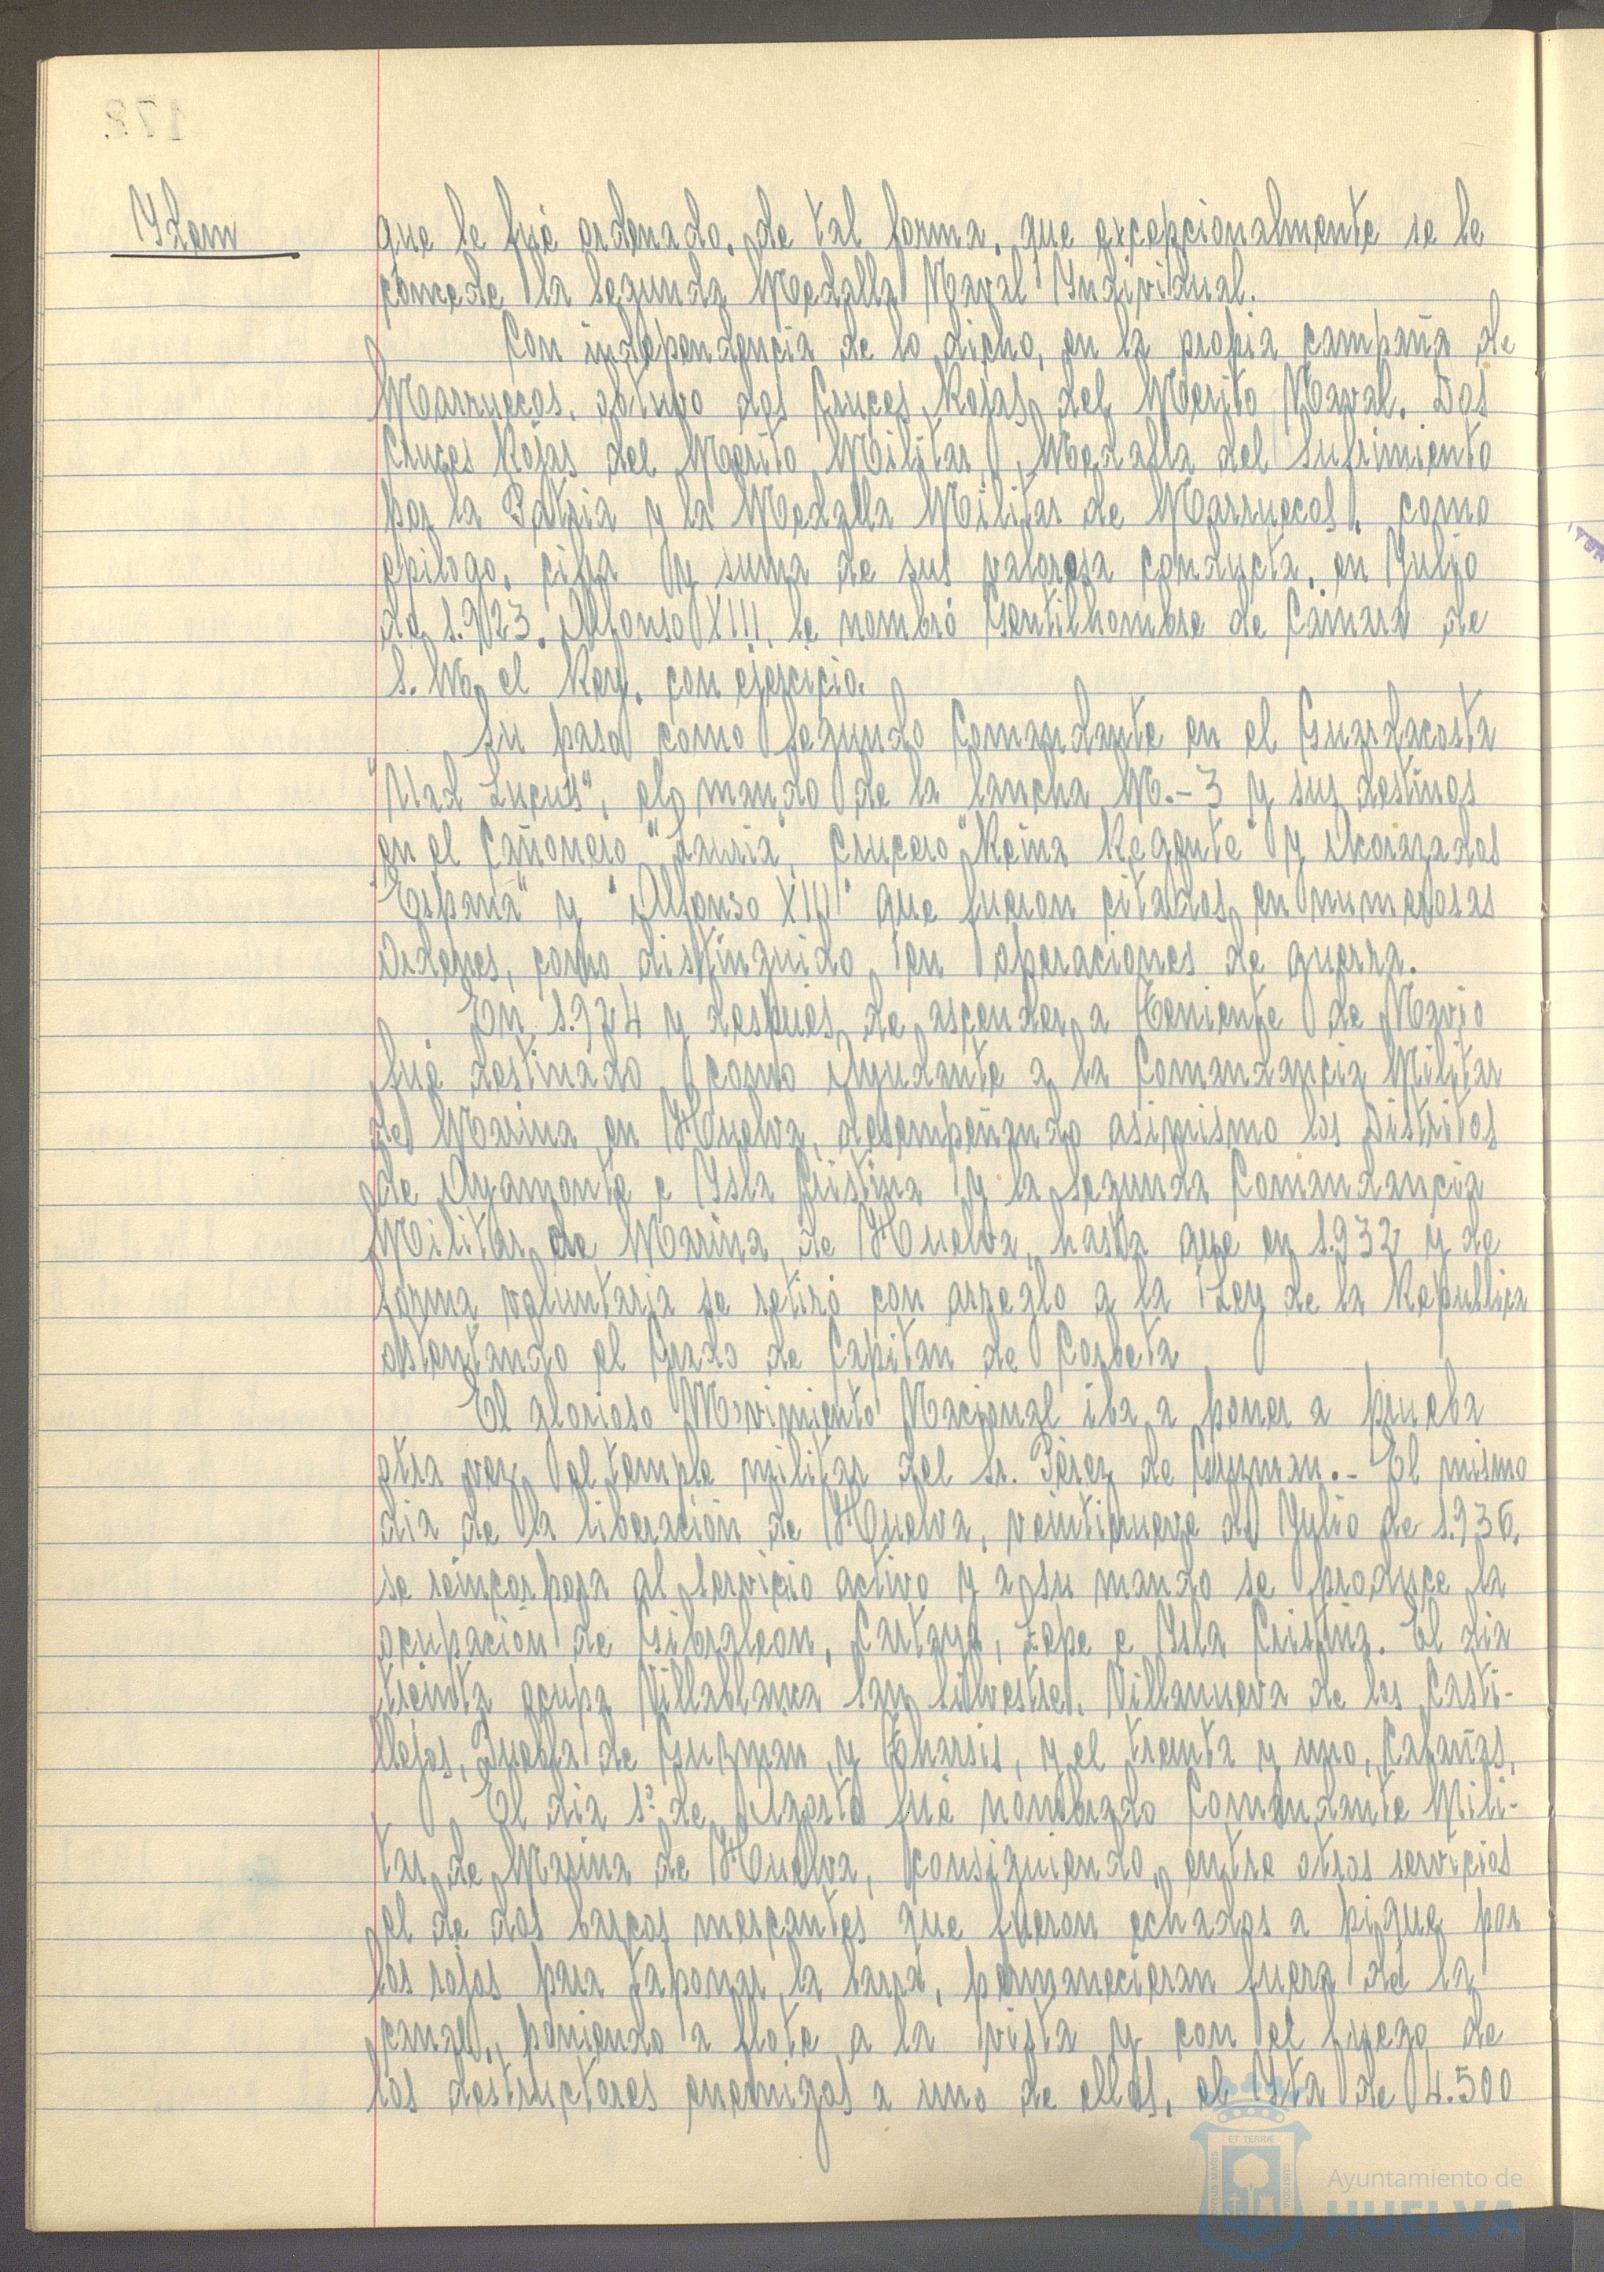 172
Ydem
que le fué ordenado, de tal forma, que excepcionalmente se le
concede la Segunda Medalla Naval Yndividual.
Con independencia de lo dicho, en la propia campaña de
Marruecos, obtuvo dos Cruces Rojas del Merito Naval. Dos
Cruces Rojas del Merito Militar, Medalla del Sufrimiento
por la Patria y la Medalla Militar de Marruecos. Como
epilogo, cifra y suma de sus valerosa conducta, en Julio
de 1.923. Alfonso XIII, le nombró Gentilhombre de Cámara de
S. M. el Rey, con ejercicio.
Su paso como Segundo Comandante en el Guardacosta
"Uad Lucus", el mando de la lancha M.-3 y sus destinos
en el Cañonero "Lauria", Crucero "Reina Regente" y Acorazados
"España" y "Alfonso XIII" que fueron citados en numerosas
Ordenes, como distinguido en operaciones de guerra.
En 1.924 y despues de ascender a Teniente de Navio
fué destinado como Ayudante a la Comandancia Militar
de Marina en Huelva, desempeñando asimismo los Distritos
de Ayamonte e Ysla Cristina y la Segunda Comandancia
Militar de Marina de Huelva, hasta que en 1.932 y de
forma voluntaria se retiró con arreglo a la Ley de la Republica
ostentando el Grado de Capitan de Corbeta
El glorioso Movimiento Nacional iba a poner a prueba
otra vez el temple militar del Sr. Pérez de Guzman.- El mismo
dia de la liberación de Huelva, veintinueve de Julio de 1.936,
se reincorpora al servicio activo y a su mando se produce la
ocupación de Gibraleon, Cartaya, Lepe e Ysla Cristina. El dia
treinta ocupa Villablanca San Silvestre, Villanueva de los Casti-
llejos, Puebla de Guzman y Tharsis, y el treinta y uno, Calañas.
El dia 1º de Agosto fué nombrado Comandante Mili-
tar de Marina de Huelva, consiguiendo, entre otros servicios
el de dos barcos mercantes que fueron echados a pique por
los rojos para taponar la barra, permanecieran fuera de la
canal, poniendo a flote a la vista y con el fuego de
los destructores enemigos a uno de ellos, el Ysta de 4.500
ET TERRÆ
PORTUS MARIS
CUSTODIA
Ayuntamiento de
HUELVA